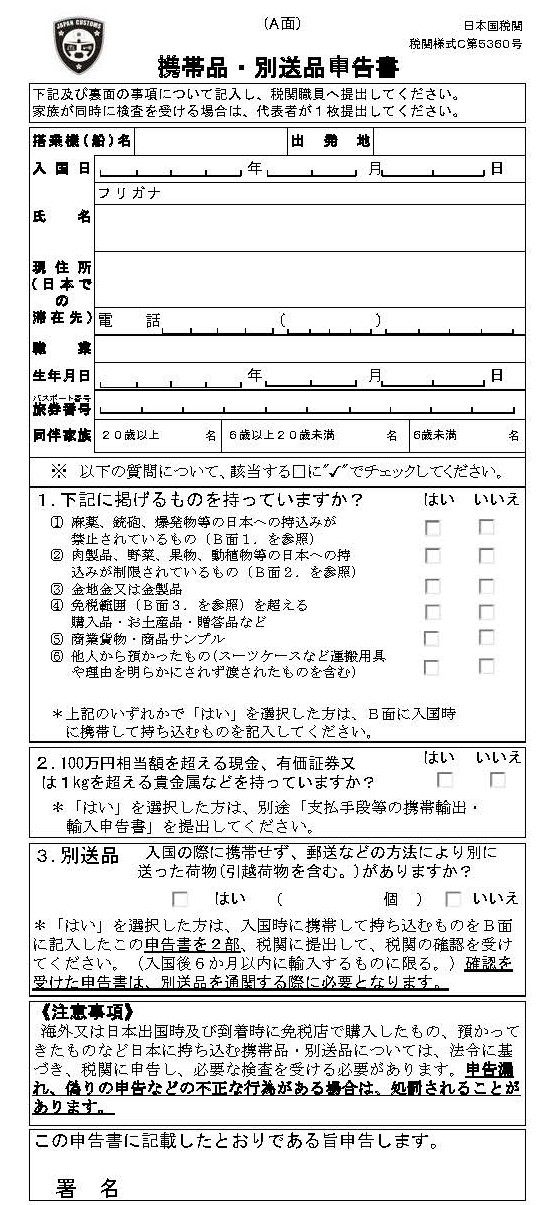 (A面)
日本国税関
税関様式C第5360号
JAPAN CUSTOMS
携帯品・別送品申告書
下記及び裏面の事項について記入し、税関職員へ提出してください。
家族が同時に検査を受ける場合は、代表者が1枚提出してください。
搭乗機(船)名 出発地
入国日 年 月 日
フリガナ
氏名
現住所
(日本での
滞在先) 電話 ( )
職業
生年月日 年 月 日
パスポート番号
旅券番号
同伴家族 20歳以上 名 6歳以上20歳未満 名 6歳未満 名
※ 以下の質問について、該当する□に"✓"でチェックしてください。
1.下記に掲げるものを持っていますか? はい いいえ
① 麻薬、銃砲、爆発物等の日本への持込みが
禁止されているもの(B面1.を参照)
② 肉製品、野菜、果物、動植物等の日本への持
込みが制限されているもの(B面2.を参照)
③ 金地金又は金製品
④ 免税範囲(B面3.を参照)を超える
購入品・お土産品・贈答品など
⑤ 商業貨物・商品サンプル
⑥ 他人から預かったもの(スーツケースなど運搬用具
や理由を明らかにされず渡されたものを含む)
*上記のいずれかで「はい」を選択した方は、B面に入国時
に携帯して持ち込むものを記入してください。
2.100万円相当額を超える現金、有価証券又 はい いいえ
は1kgを超える貴金属などを持っていますか?
*「はい」を選択した方は、別途「支払手段等の携帯輸出・
輸入申告書」を提出してください。
3.別送品 入国の際に携帯せず、郵送などの方法により別に
送った荷物(引越荷物を含む。)がありますか?
□ はい ( 個 ) □ いいえ
*「はい」を選択した方は、入国時に携帯して持ち込むものをB面
に記入したこの申告書を2部、税関に提出して、税関の確認を受け
てください。(入国後6か月以内に輸入するものに限る。)確認を
受けた申告書は、別送品を通関する際に必要となります。
《注意事項》
海外又は日本出国時及び到着時に免税店で購入したもの、預かって
きたものなど日本に持ち込む携帯品・別送品については、法令に基
づき、税関に申告し、必要な検査を受ける必要があります。申告漏
れ、偽りの申告などの不正な行為がある場合は、処罰されることが
あります。
この申告書に記載したとおりである旨申告します。
署名